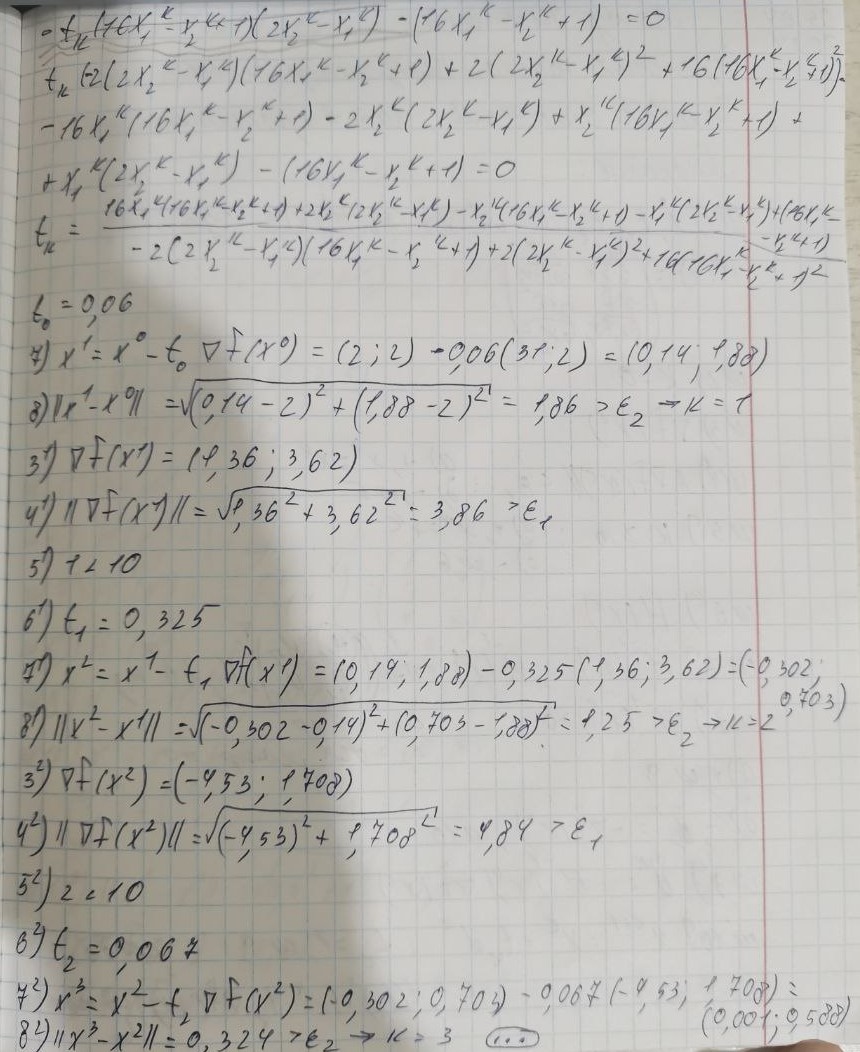 - t_k(16x₁ᵏ - x₂ᵏ+1)(2x₂ᵏ - x₁ᵏ) - (16x₁ᵏ - x₂ᵏ + 1) = 0
t_k(-2(2x₂ᵏ - x₁ᵏ)(16x₁ᵏ - x₂ᵏ + 1) + 2(2x₂ᵏ - x₁ᵏ)² + 16(16x₁ᵏ - x₂ᵏ+1)²) -
- 16x₁ᵏ(16x₁ᵏ - x₂ᵏ + 1) - 2x₂ᵏ(2x₂ᵏ - x₁ᵏ) + x₂ᵏ(16x₁ᵏ - x₂ᵏ + 1) +
+ x₁ᵏ(2x₂ᵏ - x₁ᵏ) - (16x₁ᵏ - x₂ᵏ + 1) = 0
t_k = (16x₁ᵏ(16x₁ᵏ - x₂ᵏ + 1) + 2x₂ᵏ(2x₂ᵏ - x₁ᵏ) - x₂ᵏ(16x₁ᵏ - x₂ᵏ + 1) - x₁ᵏ(2x₂ᵏ - x₁ᵏ) + (16x₁ᵏ - - x₂ᵏ + 1)) / (-2(2x₂ᵏ - x₁ᵏ)(16x₁ᵏ - x₂ᵏ + 1) + 2(2x₂ᵏ - x₁ᵏ)² + 16(16x₁ᵏ - x₂ᵏ + 1)²)
t₀ = 0,06
7) x¹ = x⁰ - t₀ ∇f(x⁰) = (2; 2) - 0,06(31; 2) = (0,14; 1,88)
8) ||x¹ - x⁰|| = √((0,14 - 2)² + (1,88 - 2)²) = 1,86 > ε₂ → k = 1
3¹) ∇f(x¹) = (1,36; 3,62)
4¹) ||∇f(x¹)|| = √(1,36² + 3,62²) = 3,86 > ε₁
5¹) 1 < 10
6¹) t₁ = 0,325
7¹) x² = x¹ - t₁ ∇f(x¹) = (0,14; 1,88) - 0,325(1,36; 3,62) = (-0,302; 0,703)
8¹) ||x² - x¹|| = √((-0,302 - 0,14)² + (0,703 - 1,88)²) = 1,25 > ε₂ → k = 2
3²) ∇f(x²) = (-4,53; 1,708)
4²) ||∇f(x²)|| = √((-4,53)² + 1,708²) = 4,84 > ε₁
5²) 2 < 10
6²) t₂ = 0,067
7²) x³ = x² - t₂ ∇f(x²) = (-0,302; 0,703) - 0,067(-4,53; 1,708) = (0,001; 0,588)
8²) ||x³ - x²|| = 0,324 > ε₂ → k = 3 (...)